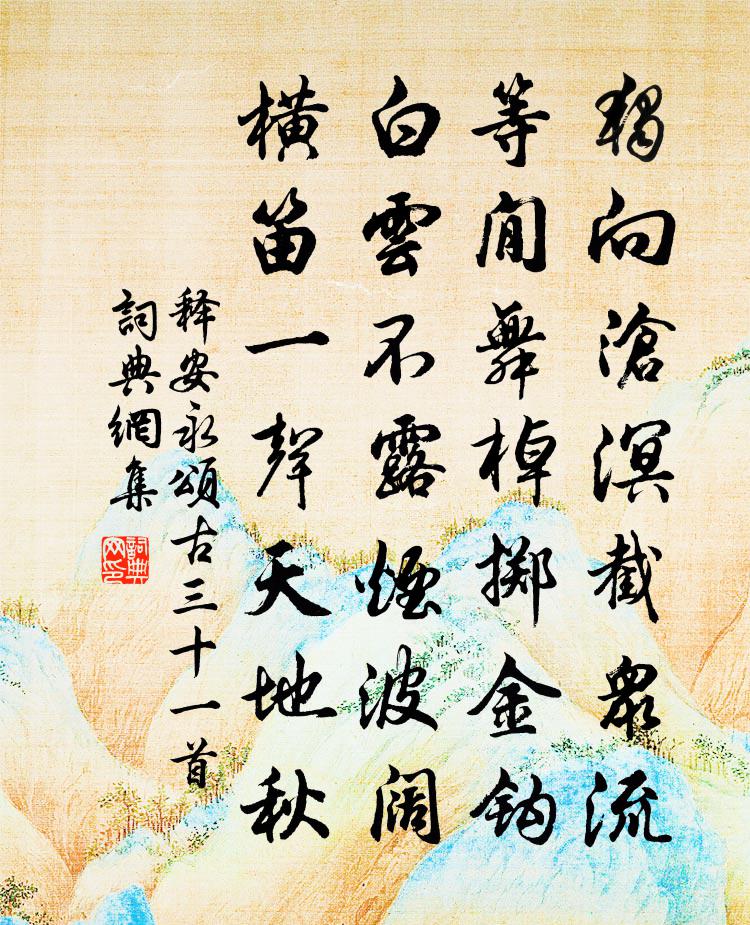 獨向滄溟截眾流
等閒舞棹擲金鈎
白雲不露煙波阔
橫笛一聲天地秋
释安永頌古三十一首
詞典網集
詞典网印